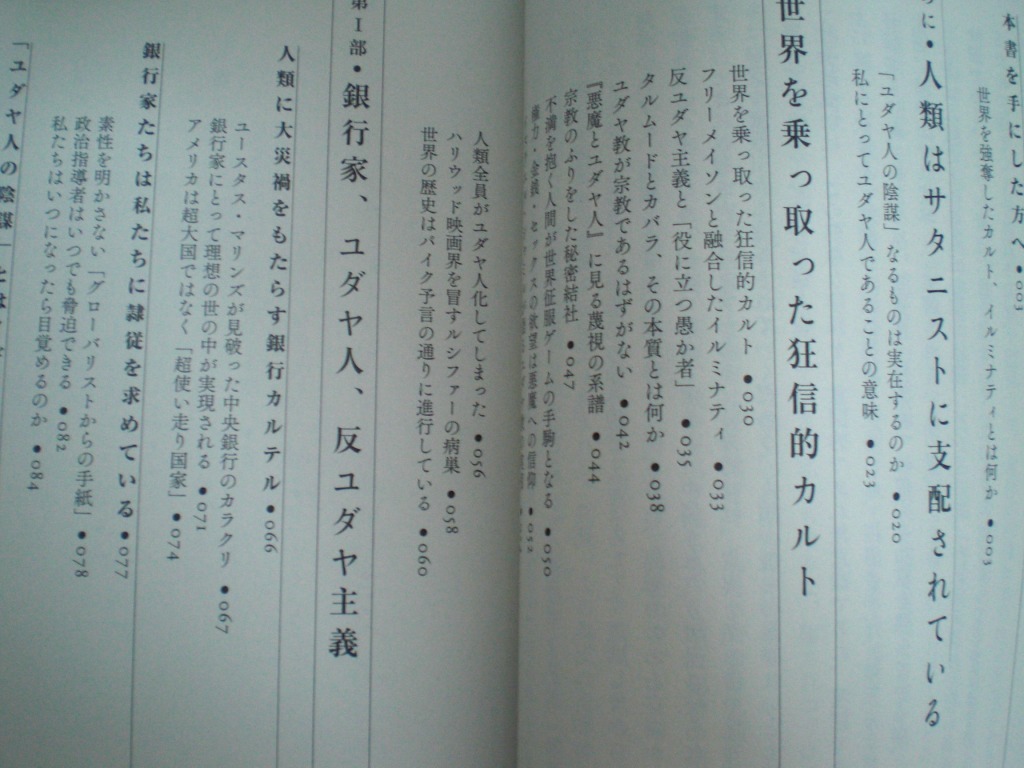 本書を手にした方へ●003
世界を強奪したカルト、イルミナティとは何か ●003
に●人類はサタニストに支配されている
「ユダヤ人の陰謀」なるものは実在するのか ●020
私にとってユダヤ人であることの意味 ●023
世界を乗っ取った狂信的カルト
世界を乗っ取った狂信的カルト ●030
フリーメイソンと融合したイルミナティ ●033
反ユダヤ主義と「役に立つ愚か者」 ●035
タルムードとカバラ、その本質とは何か ●038
ユダヤ教が宗教であるはずがない ●042
『悪魔とユダヤ人』に見る蔑視の系譜 ●044
宗教のふりをした秘密結社 ●047
不満を抱く人間が世界征服ゲームの手駒となる ●050
権力・金銭・セックスの欲望は悪魔への信仰 ●052
人類全員がユダヤ人化してしまった ●056
ハリウッド映画界を冒すルシファーの病巣 ●058
世界の歴史はパイク予言の通りに進行している ●060
第Ⅰ部●銀行家、ユダヤ人、反ユダヤ主義
人類に大災禍をもたらす銀行カルテル ●066
ユースタス・マリンズが見破った中央銀行のカラクリ ●067
銀行家にとって理想の世の中が実現される ●071
アメリカは超大国ではなく「超使い走り国家」 ●074
銀行家たちは私たちに隷従を求めている ●077
素性を明かさない「グローバリストからの手紙」 ●078
政治指導者はいつでも脅迫できる ●082
私たちはいつになったら目覚めるのか ●084
「ユダヤ人の陰謀」とは